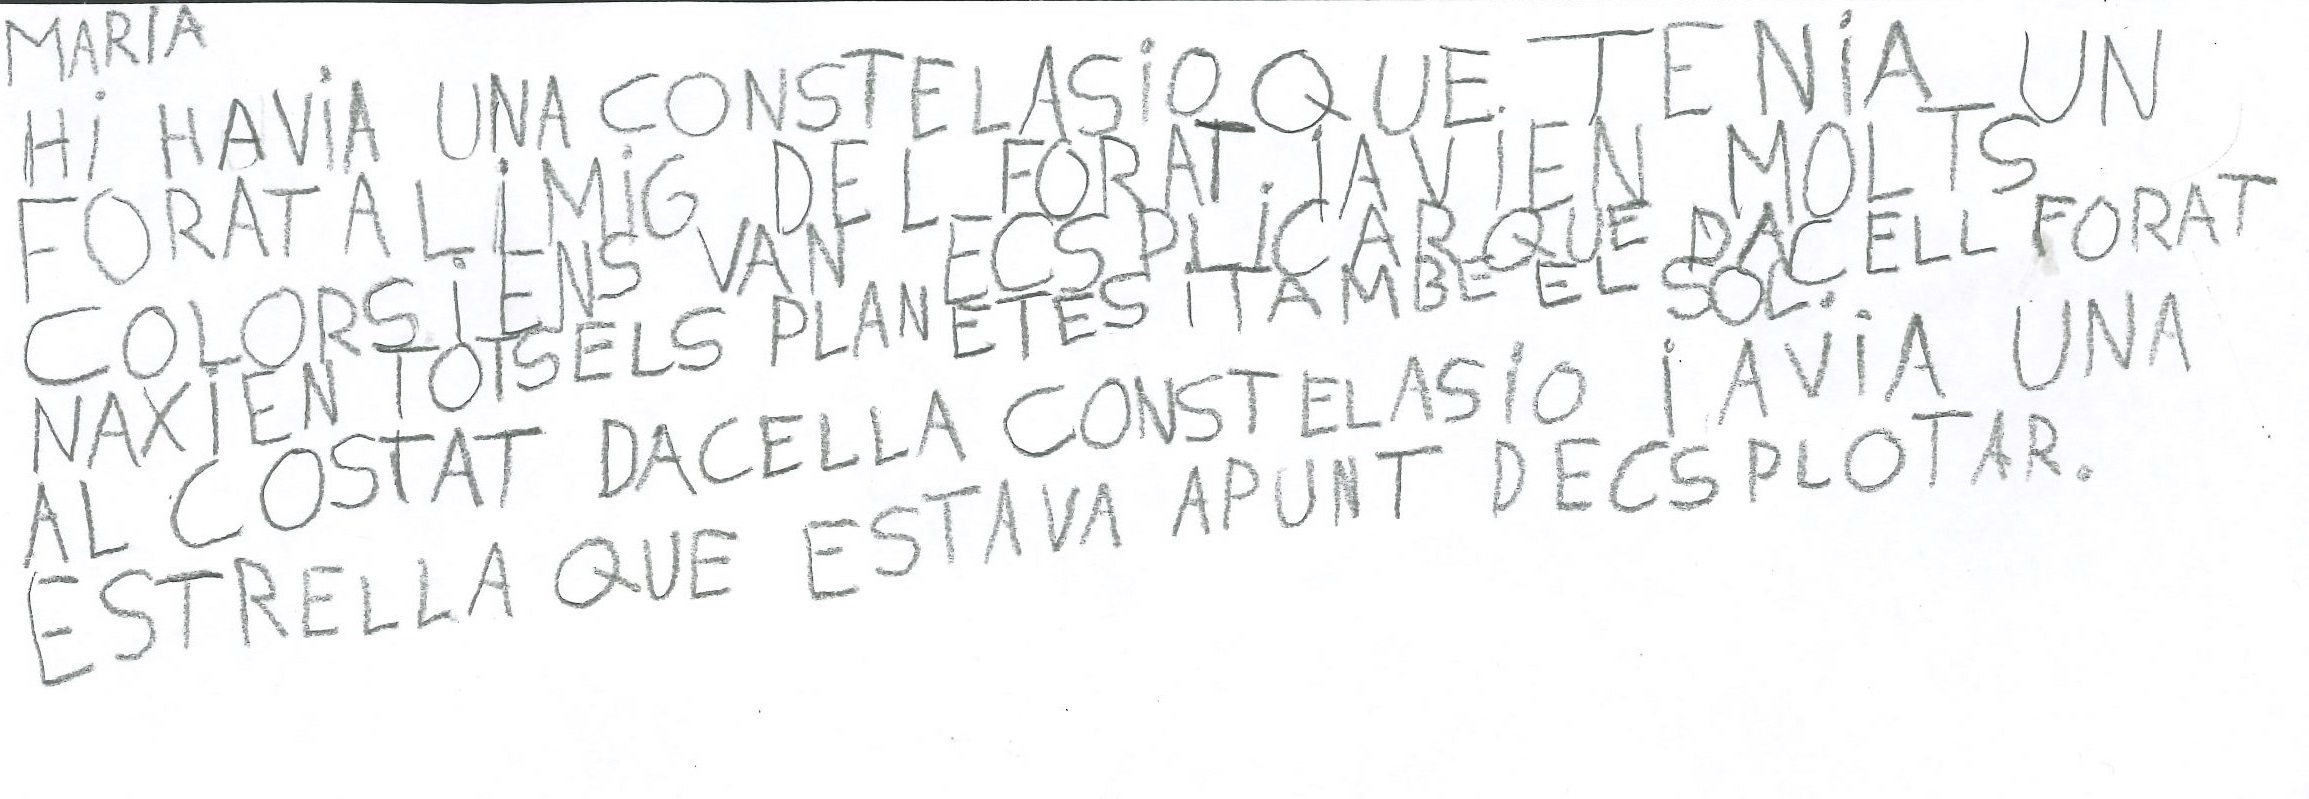 MARIA
Hi HAViA UNA CONSTELASiO QUE TENiA UN
FORAT AL iMiG DEL FORAT iAViEN MOLTS
COLORS i ENS VAN ECSPLiCAR QUE DACELL FORAT
NAXiEN TOTS ELS PLANETES i TAMBE EL SOL.
AL COSTAT DACELLA CONSTELASiO iAViA UNA
ESTRELLA QUE ESTAVA APUNT DECSPLOTAR.